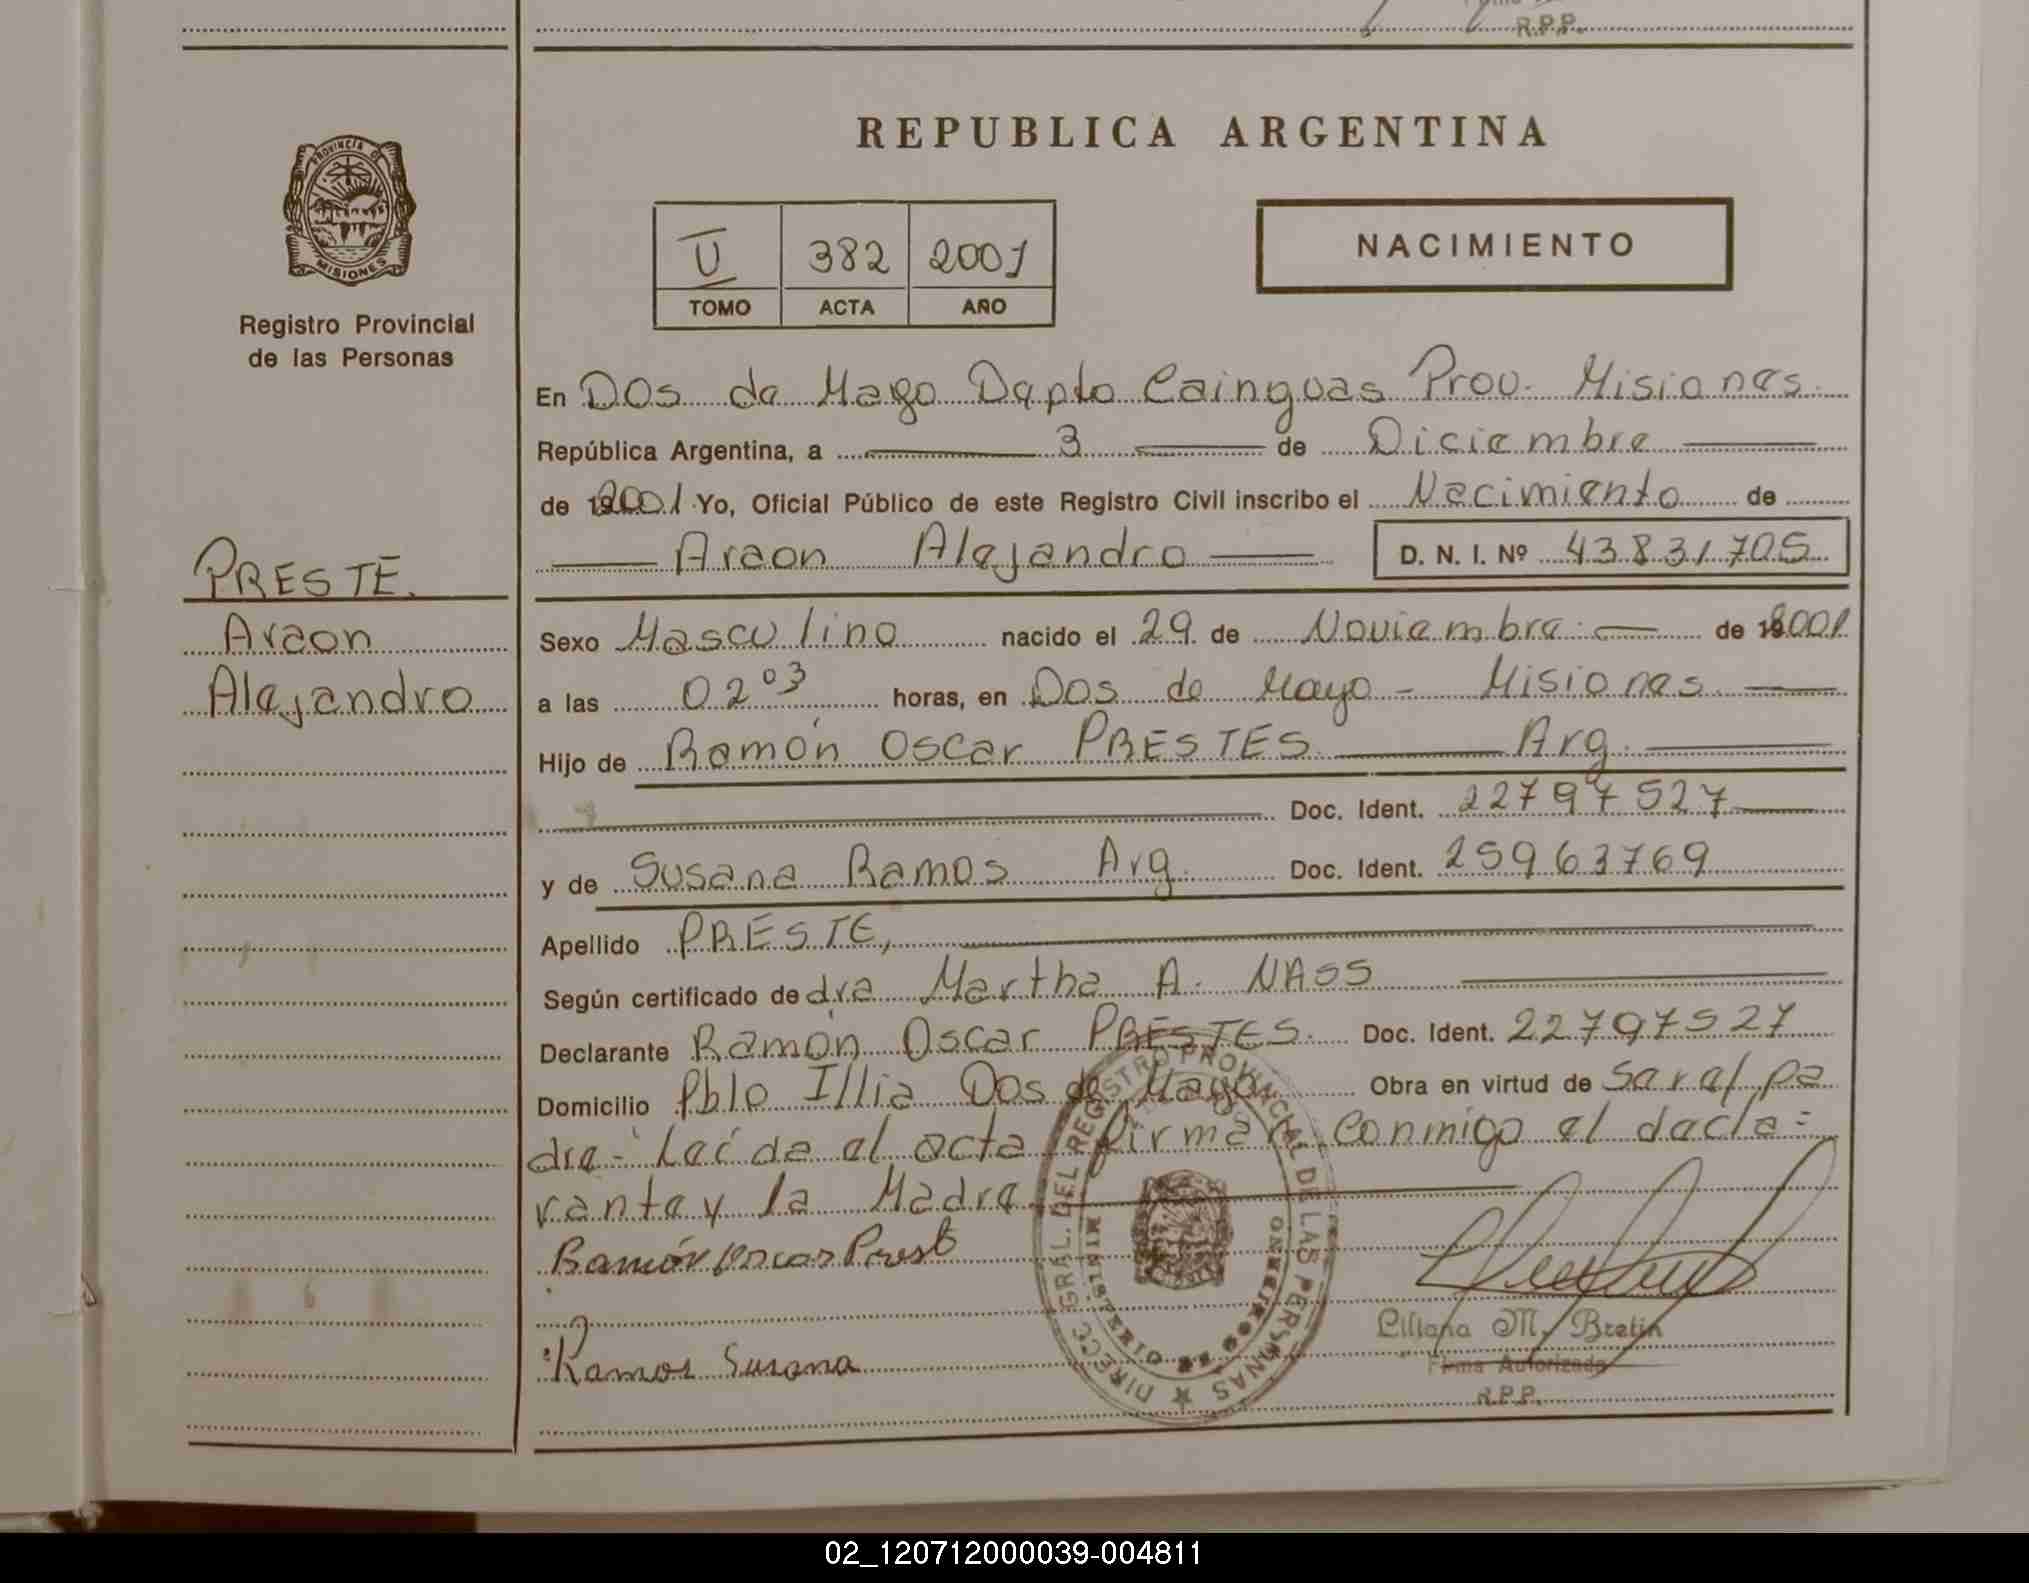 R.P.P.
PROVINCIA DE
MISIONES
Registro Provincial
de las Personas
REPUBLICA ARGENTINA
II 382 2001
TOMO ACTA AÑO
NACIMIENTO
En Dos de Mayo Dapto Cainguas Prov. Misiones
República Argentina, a 3 de Diciembre
de 2001 Yo, Oficial Público de este Registro Civil inscribo el Nacimiento de
Araon Alejandro D. N. I. Nº 43831705
PRESTE.
Araon
Alejandro
Sexo Masculino nacido el 29 de Noviembre de 2001
a las 02 03 horas, en Dos de Mayo - Misiones
Hijo de Ramón Oscar PRESTES Arg.
Doc. Ident. 22797527
y de Susana Ramos Arg. Doc. Ident. 25963769
Apellido PRESTE,
Según certificado de dra Martha A. NASS
Declarante Ramón Oscar PRESTES. Doc. Ident. 22797527
Domicilio Pblo Illia Dos de Mayo Obra en virtud de Sar al pa
dre - Leída el acta firman conmigo el decla=
rante y la Madre
Ramón Oscar Prest
Ramos Susana
DIRECC. GRAL. DEL REGISTRO PROVINCIAL DE LAS PERSONAS
MINISTERIO DE GOBIERNO
Liliana M. Bretin
Firma Autorizada
R.P.P.
02_120712000039-004811